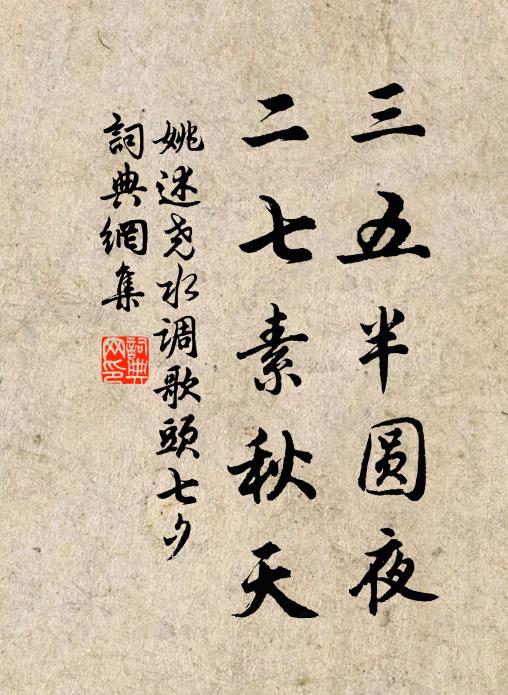 三五半圆夜
二七素秋天
姚述尧水调歌头七夕
詞典網集
詞典网印